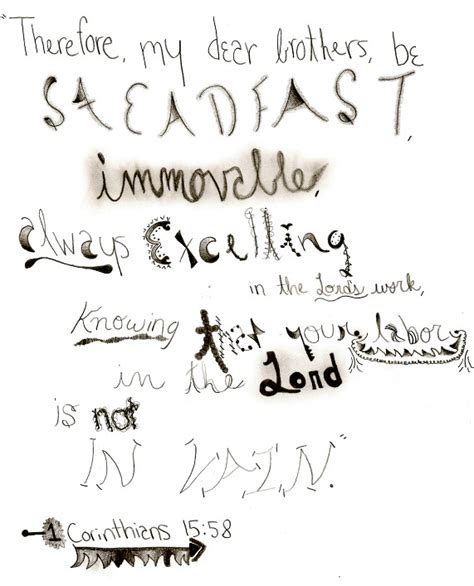 "Therefore, my dear brothers, be
STEADFAST,
immovable,
always Excelling
in the Lord's work,
Knowing that your labor
in the Lord
is not
IN VAIN."
1 Corinthians 15:58